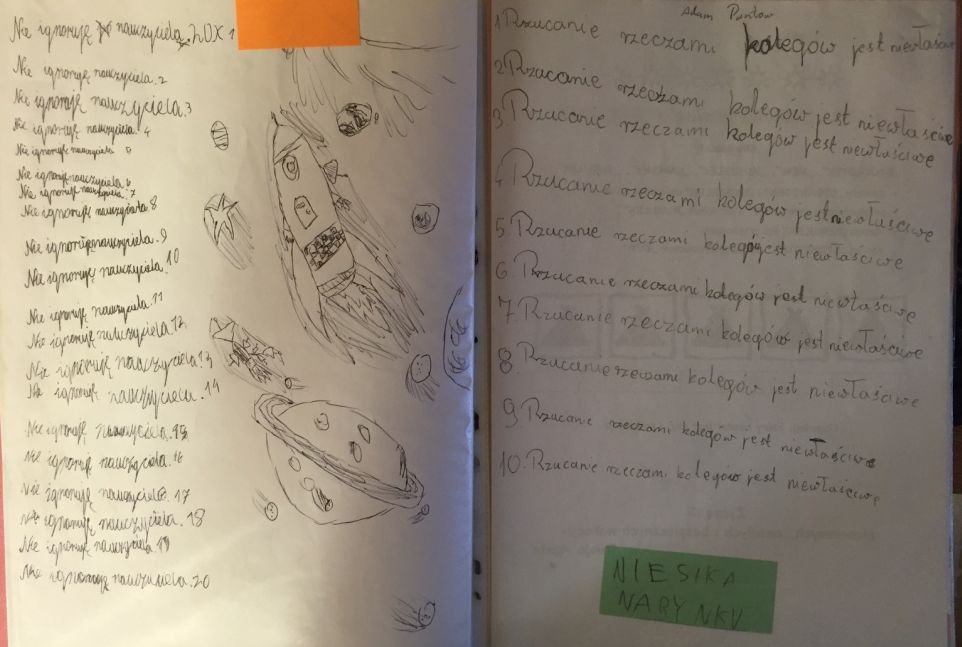 Nie ignoruję nauczyciela. 20X 1
Nie ignoruję nauczyciela. 2
Nie ignoruję nauczyciela. 3
Nie ignoruję nauczyciela. 4
Nie ignoruję nauczyciela 5
Nie ignoruję nauczyciela. 6
Nie ignoruję nauczyciela. 7
Nie ignoruję nauczyciela. 8
Nie ignoruję nauczyciela. 9
Nie ignoruję nauczyciela. 10
Nie ignoruję nauczyciela. 11
Nie ignoruję nauczyciela 12
Nie ignoruję nauczyciela. 13
Nie ignoruję nauczyciela. 14
Nie ignoruję nauczyciela. 15
Nie ignoruję nauczyciela. 16
Nie ignoruję nauczyciela. 17
Nie ignoruję nauczyciela. 18
Nie ignoruję nauczyciela. 19
Nie ignoruję nauczyciela. 20
Adam
1 Rzucanie rzeczami kolegów jest niewłaściwe
2 Rzucanie rzeczami kolegów jest niewłaściwe
3. Rzucanie rzeczami kolegów jest niewłaściwe
4 Rzucanie rzeczami kolegów jest niewłaściwe
5. Rzucanie rzeczami kolegów jest niewłaściwe
6. Rzucanie rzeczami kolegów jest niewłaściwe
7. Rzucanie rzeczami kolegów jest niewłaściwe
8. Rzucanie rzeczami kolegów jest niewłaściwe
9. Rzucanie rzeczami kolegów jest niewłaściwe
10. Rzucanie rzeczami kolegów jest niewłaściwe
NIESIKA
NARYNKU